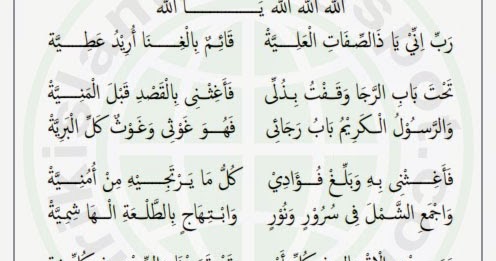 الله الله الله الله يَـــا الله
رَبِّ اِنِّيْ يَا ذَالصِّفَاتِ الْعَلِـيَّةْ قَائِـمٌ بِالْغِـنَـا أُرِيْدُ عَطِـيَّة
تَحْتَ بَابِ الرَّجَا وَقَـفْتُ بِـذُلِّى فَأَغِـثْـنِى بِالْقَصْدِ قَبْلَ الْمَنِـيَّةْ
وَالرَّسـُوْلُ الْـكَرِيْمُ بَابُ رَجَائِى فَهُـوَ غَوْثِى وَغَوْثُ كُلِّ الْبَرِيَّةْ
فَأَغِـثْـنِى بِهِ وَبَلِّـغْ فُـؤَادِيْ كُلَّ مَا يَـرْتَجِـيْـهِ مِنْ أُمْنِـيَّةْ
وَاجْمَعِ الشَّمْـلَ فِى سُرُوْرٍ وَنُوْرٍ وَابْـتِهَاجٍ بِالطَّلْـعَةِ الْـهَا شِمِيَّةْ